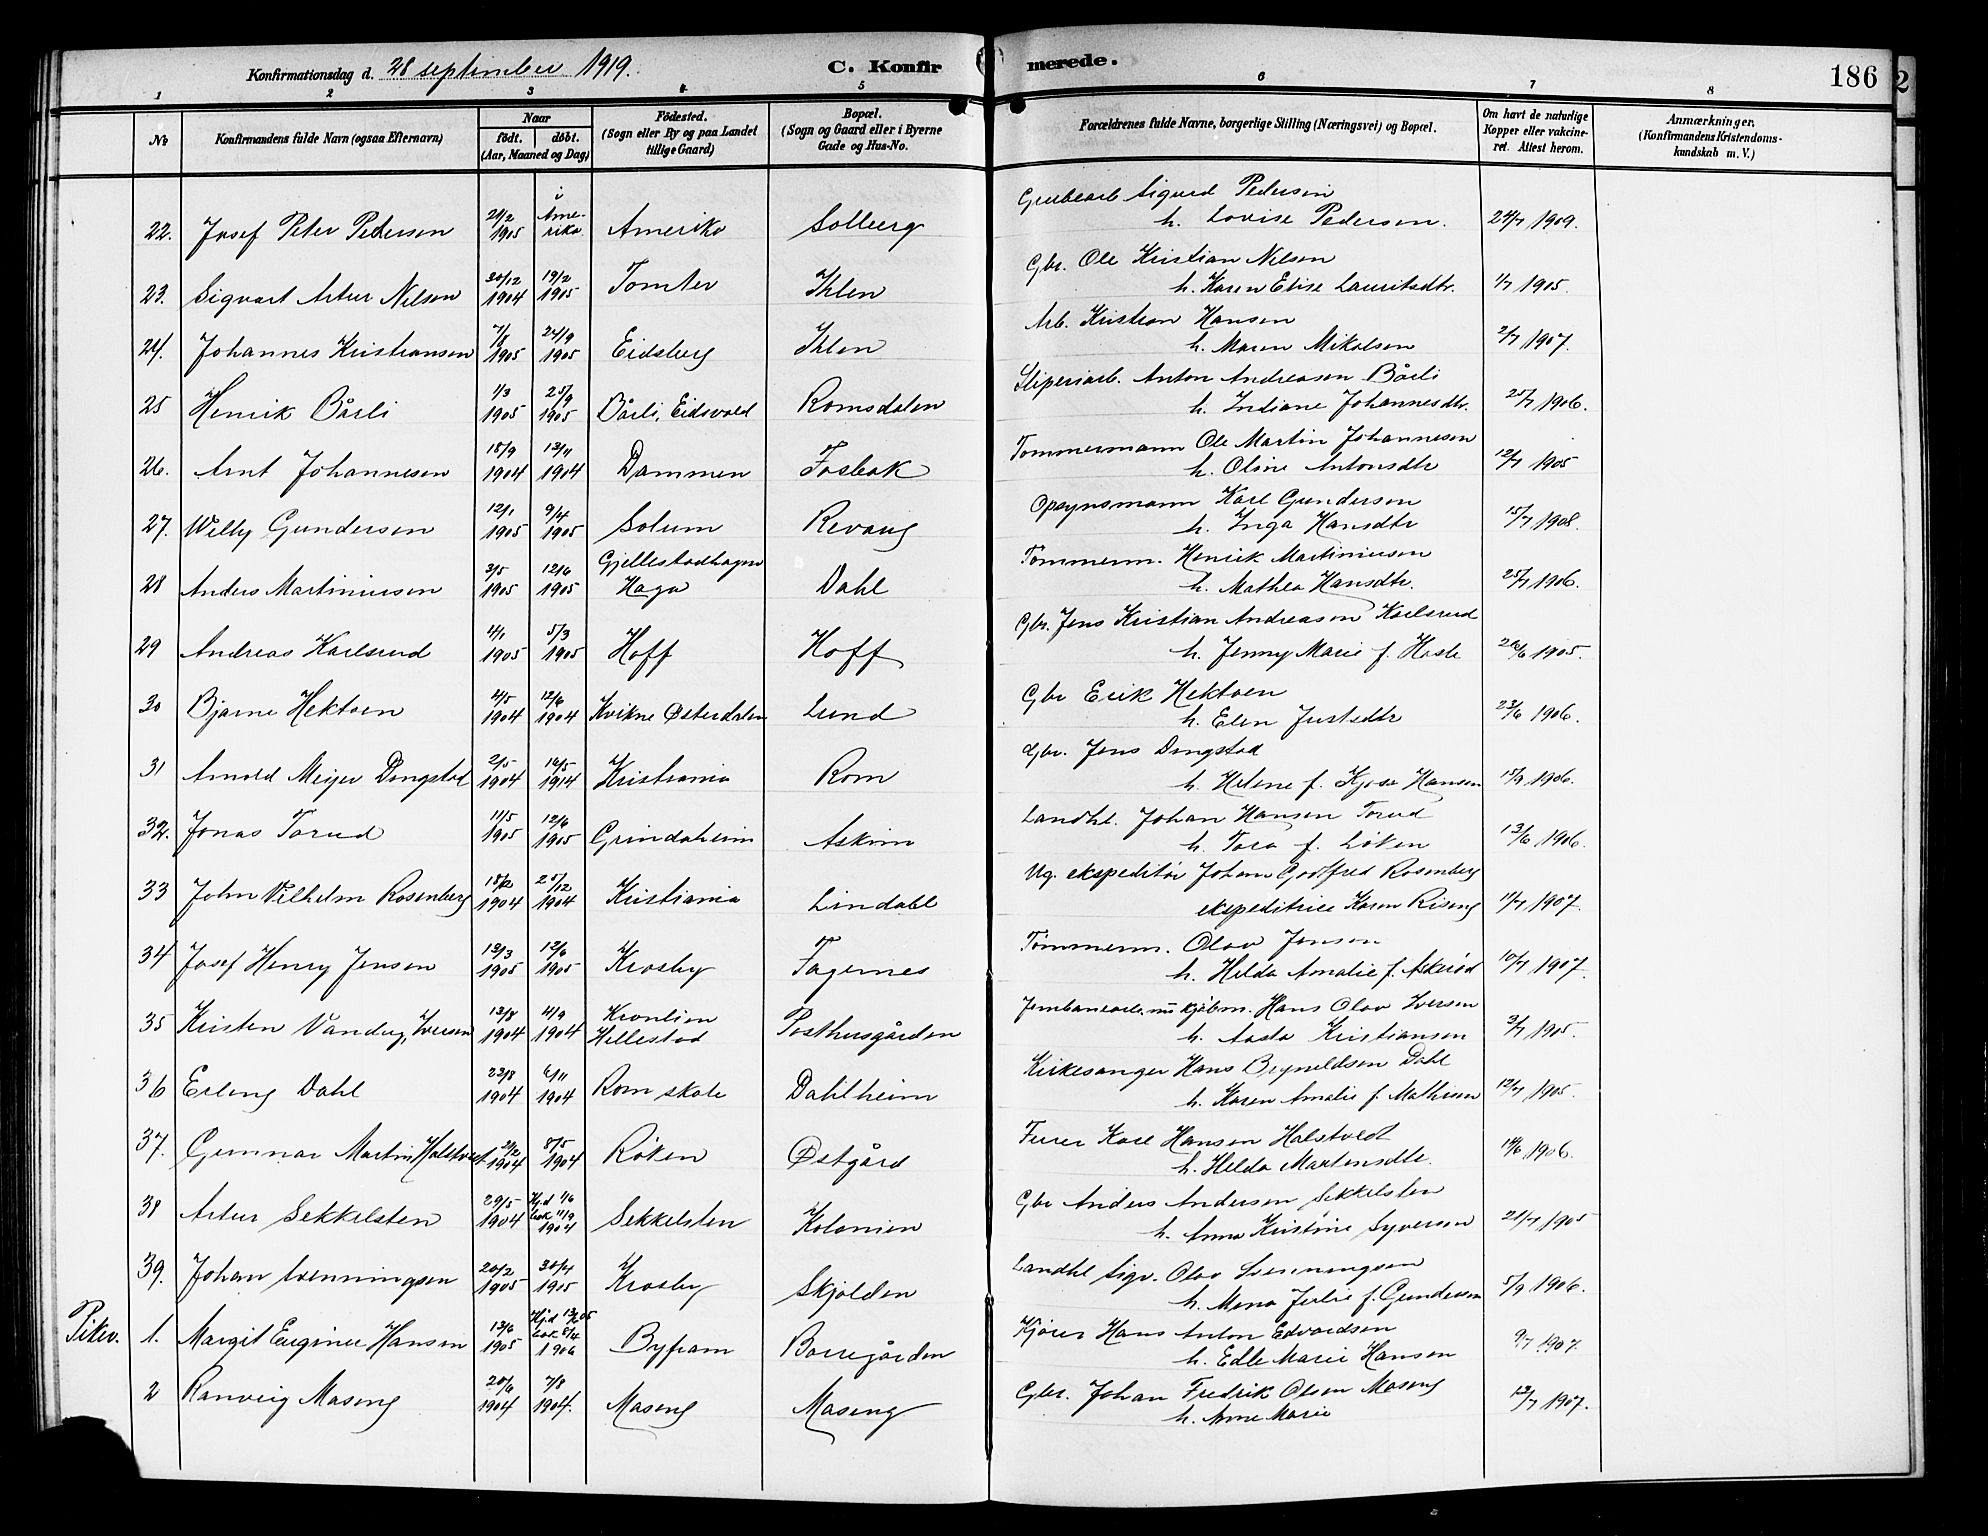 Konfirmationsdag d. 28 september 1919. C. Konfirmerede. 186
1 2 3 4 5 6 7 8
No Konfirmandens fulde Navn (ogsaa Efternavn) Naar født. døbt. (Aar, Maaned og Dag) Fødested. (Sogn eller By og paa Landet tillige Gaard) Bopæl. (Sogn og Gaard eller i Byerne Gade og Hus-No. Forældrenes fulde Navne, borgerlige Stilling (Næringsvei) og Bopæl. Om havt de naturlige Kopper eller vakcineret. Attest herom. Anmærkninger. (Konfirmandens Kristendomskundskab m. V.)
22. Josef Peter Pedersen 21/2 1905 i Amerika Amerika Solberg Grubearb. Sigurd Pedersen
h. Lovise Pedersen. 24/7 1909.
23. Sigvart Artur Nelsen 30/12 1904 19/2 1905 Tomter Ihlen Gbr. Ole Kristian Nelsen
h. Karen Elise Lauritsdtr. 1/7 1905.
24. Johannes Kristiansen 7/8 1905 24/9 1905 Eidsberg Ihlen Arb. Kristian Hansen
h. Maren Mikalsen 2/7 1907.
25 Henrik Bårli 1/3 1905 25/9 1905 Bårli, Eidsvold Romsdalen Sliperiarb. Anton Andreasen Bårli
h. Indiane Johannesdtr. 25/7 1906.
26. Arnt Johannesen 18/9 1904 13/11 1904 Dammen Fosbak Tømmermann Ole Martin Johannesen
h. Oline Antonsdtr 12/7 1905
27. Willy Gundersen 12/1 1905 9/4 1905 Solum Revaug Opsynsmann Karl Gundersen
h. Inga Hansdtr 15/7 1908.
28 Anders Martiniusen 3/5 1905 12/6 1905 Gjellestadhagen Haga Dahl Tømmerm. Henrik Martiniusen
h. Mathea Hansdtr. 25/7 1906.
29 Andreas Karlsrud 4/1 1905 5/3 1905 Hoff Hoff Gbr. Jens Kristian Andreasen Karlsrud
h. Jenny Marie f. Hasle 1905.
30 Bjarne Hektoen 4/5 1904 12/6 1904 Kvikne Østerdalen Lund Gbr Erik Hektoen
h. Elen Justsdtr 23/6 1906.
31 Arnold Meyer Dingstad 2/5 1904 16/5 1914 Kristiania Rom Gbr. Jens Dingstad
h. Helene f. Hansen 15/9 1906.
32. Jonas Torud 11/5 1905 12/6 1905 Grindaheim Askim Landhl. Johan Hansen Torud
h. Tora f. Løken 13/6 1906.
33 John Vilhelm Rosenberg 18/2 1904 25/12 1904 Kristiania Lindahl Ug. ekspeditør Johan Godtfred Rosenberg
ekspeditrice Karen Riseng 11/7 1907.
34 Josef Henry Jensen 13/3 1905 12/6 1905 Krosby Fagernes Tømmerm. Olav Jensen
h. Hilda Amalie f. Askerød 10/7 1907.
35 Kristen Iversen 13/8 1904 4/9 1904 Kronlien Hellestad Posthusgården Jernbanearb. nu kjøbm. Hans Olav Iversen
h. Aasta Kristiansen 3/7 1905.
36 Erling Dahl 23/8 1904 6/11 1904 Rom skole Dahlheim Kirkesanger Hans Brynildsen Dahl
h. Karen Amalie f. Mathisen 12/7 1905.
37. Gunnar Martin Halstvedt 1904 8/5 1904 Røken Østgård Furer Karl Hansen Halstvedt
h. Hilda Martinsdtr. 14/6 1906.
38 Artur Sekkelsten 29/5 1904 Hjd 1/6 bek 11/9 1904 Sekkelsten Kolonien Gbr Anders Andersen Sekkelsten
h. Anna Kristine Syversen 21/7 1905
39. Johan Svenningsen 20/2 1905 30/4 1905 Krosby Skjolden Landhl Sigv. Olav Svenningsen
h. Mona Julie f. Gundersen 5/9 1906.
Piker. 1. Margit Euginie Hansen 13/6 1905 Hjd bek. 8/4 1906 Byfram Borregården Kjører Hans Anton Edvardsen
h. Edle Marie Hansen 9/7 1907.
2 Ranveig Maseng 20/6 1904 7/8 1904. Maseng Maseng Gbr. Johan Fredrik Olsen Maseng
h. Anne Marie 12/7 1907.